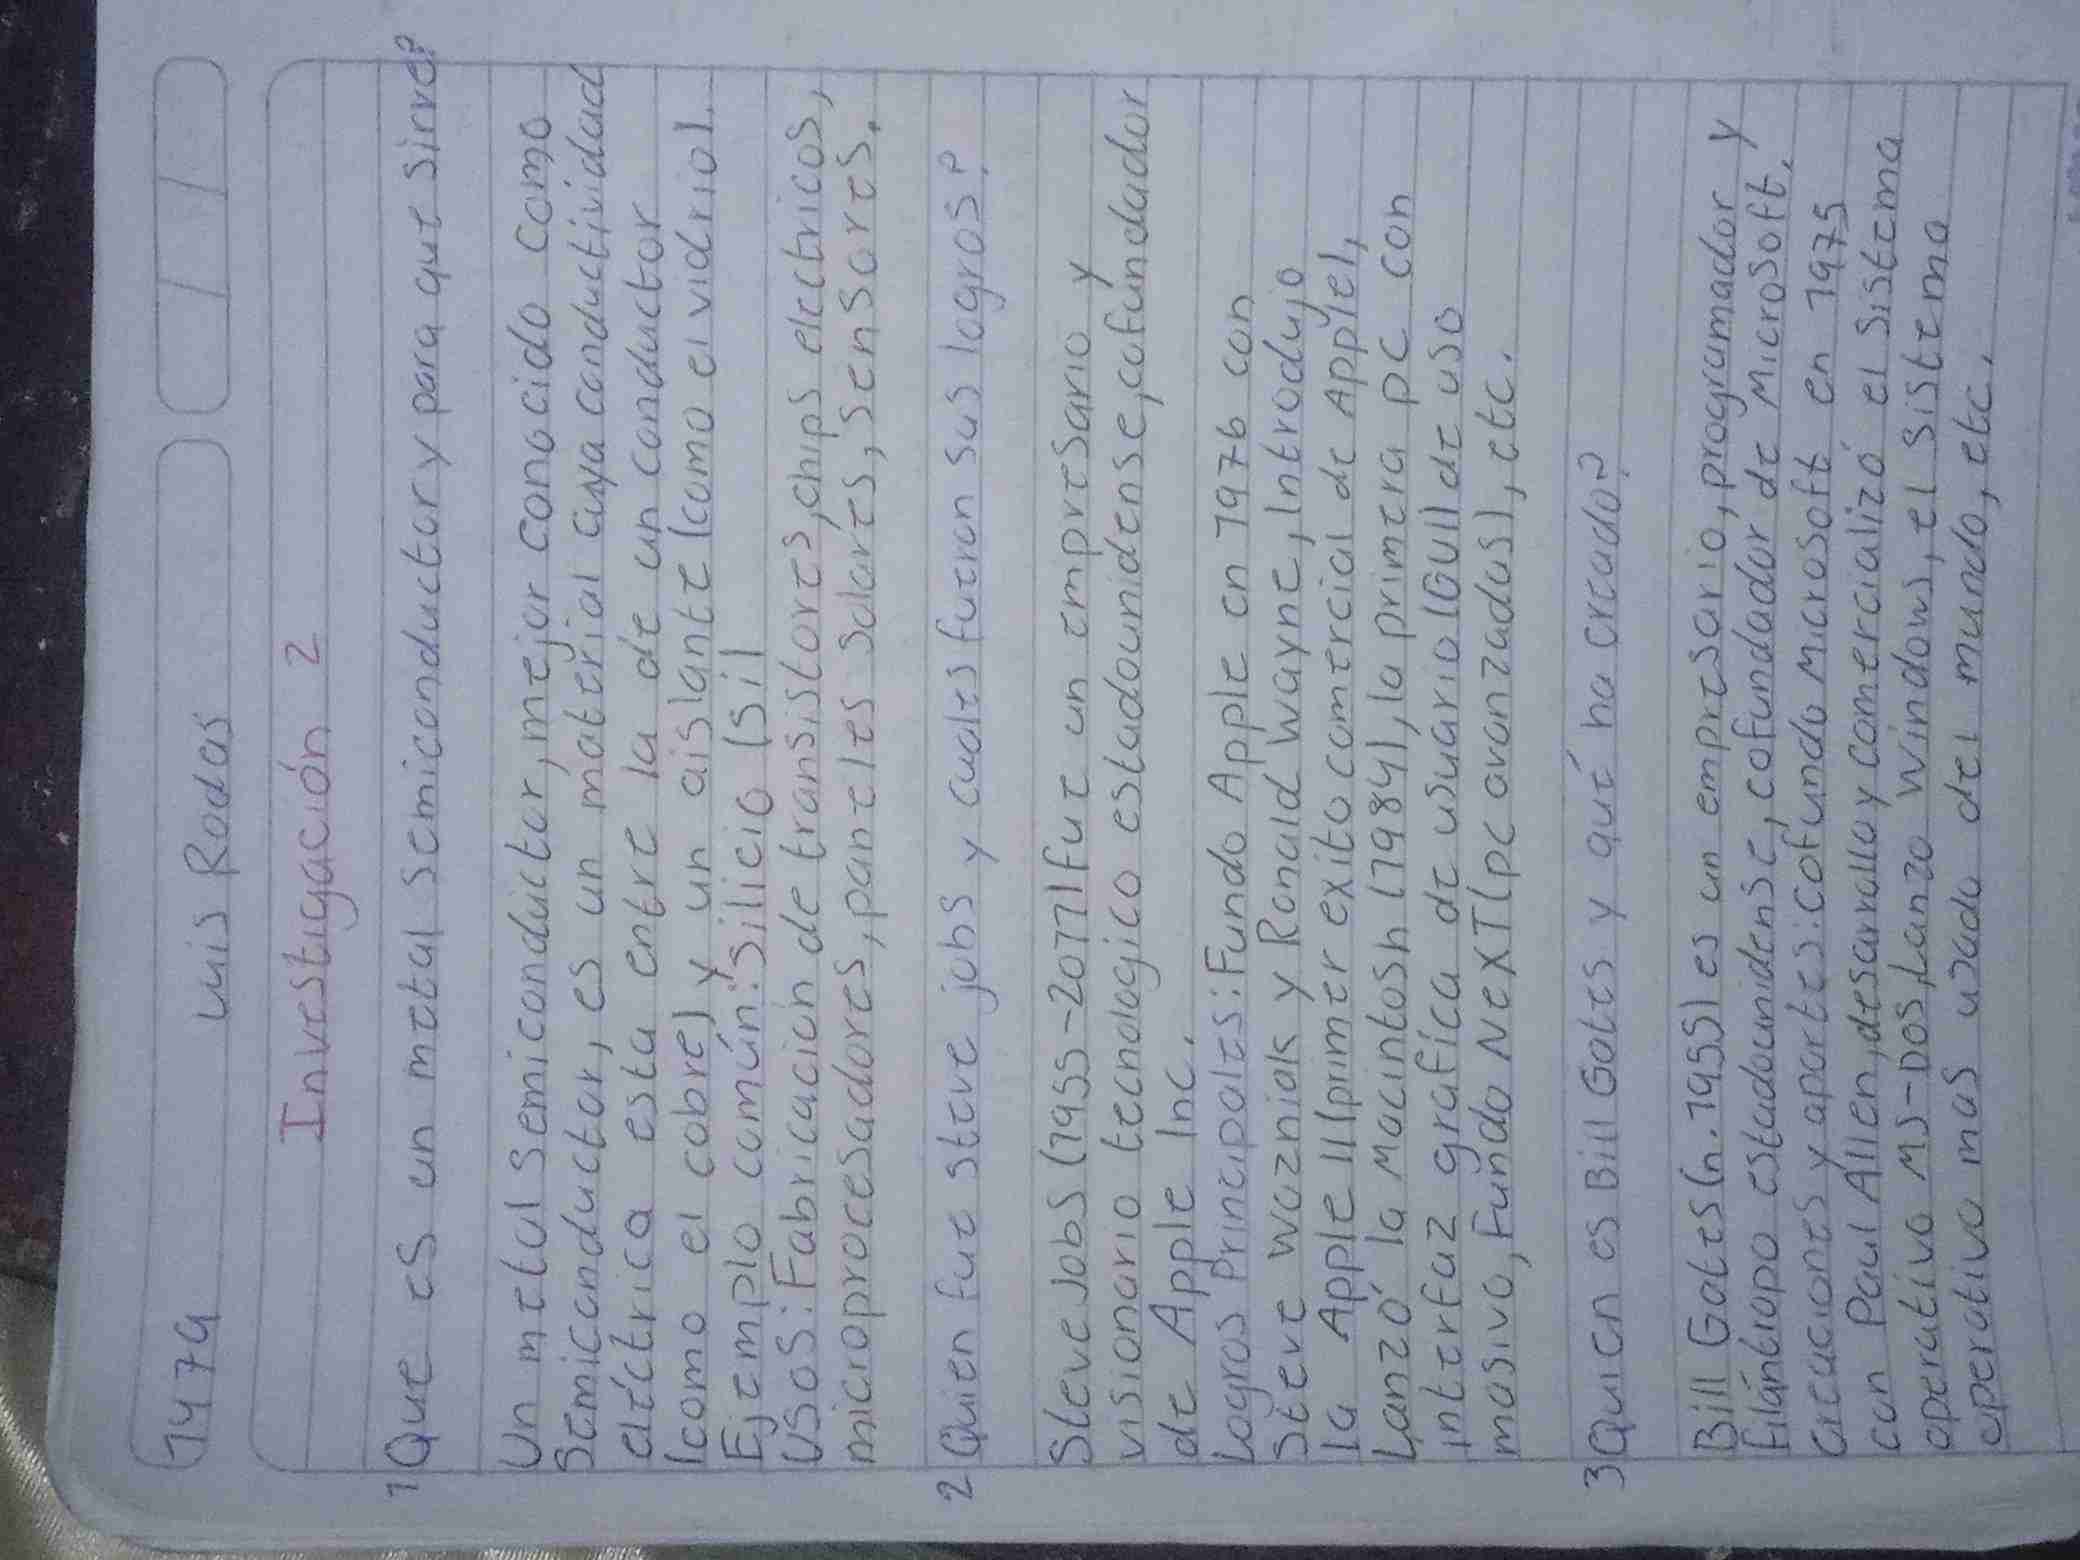 1479
Luis Rodas
Investigación 2
1 Que es un metal semiconductor y para que sirve?
Un metal semiconductor, mejor conocido como
semiconductor, es un material cuya conductividad
eléctrica esta entre la de un conductor
(como el cobre) y un aislante (como el vidrio).
Ejemplo común: Silicio (si)
Usos: Fabricación de transistores, chips electricos,
microprocesadores, paneles solares, sensores.
2 Quien fue steve jobs y cuales fueron sus logros?
Steve Jobs (1955-2011) fue un empresario y
visionario tecnologico estadounidense, cofundador
de Apple Inc.
Logros Principales: Fundo Apple en 1976 con
Steve Wozniak y Ronald Wayne, Introdujo
la Apple II (primer exito comercial de Apple),
Lanzó la Macintosh (1984), la primera pc con
interfaz grafica de usuario (GUI) de uso
masivo, Fundo NeXT (pc avanzadas), etc.
3 Quien es Bill Gates y qué ha creado?
Bill Gates (n. 1955) es un empresario, programador y
filántropo estadounidense, cofundador de Microsoft.
Creaciones y aportes: Cofundo Microsoft en 1975
con Paul Allen, desarrollo y comercializó el sistema
operativo MS-DOS, Lanzo Windows, el sistema
operativo mas usado del mundo, etc.